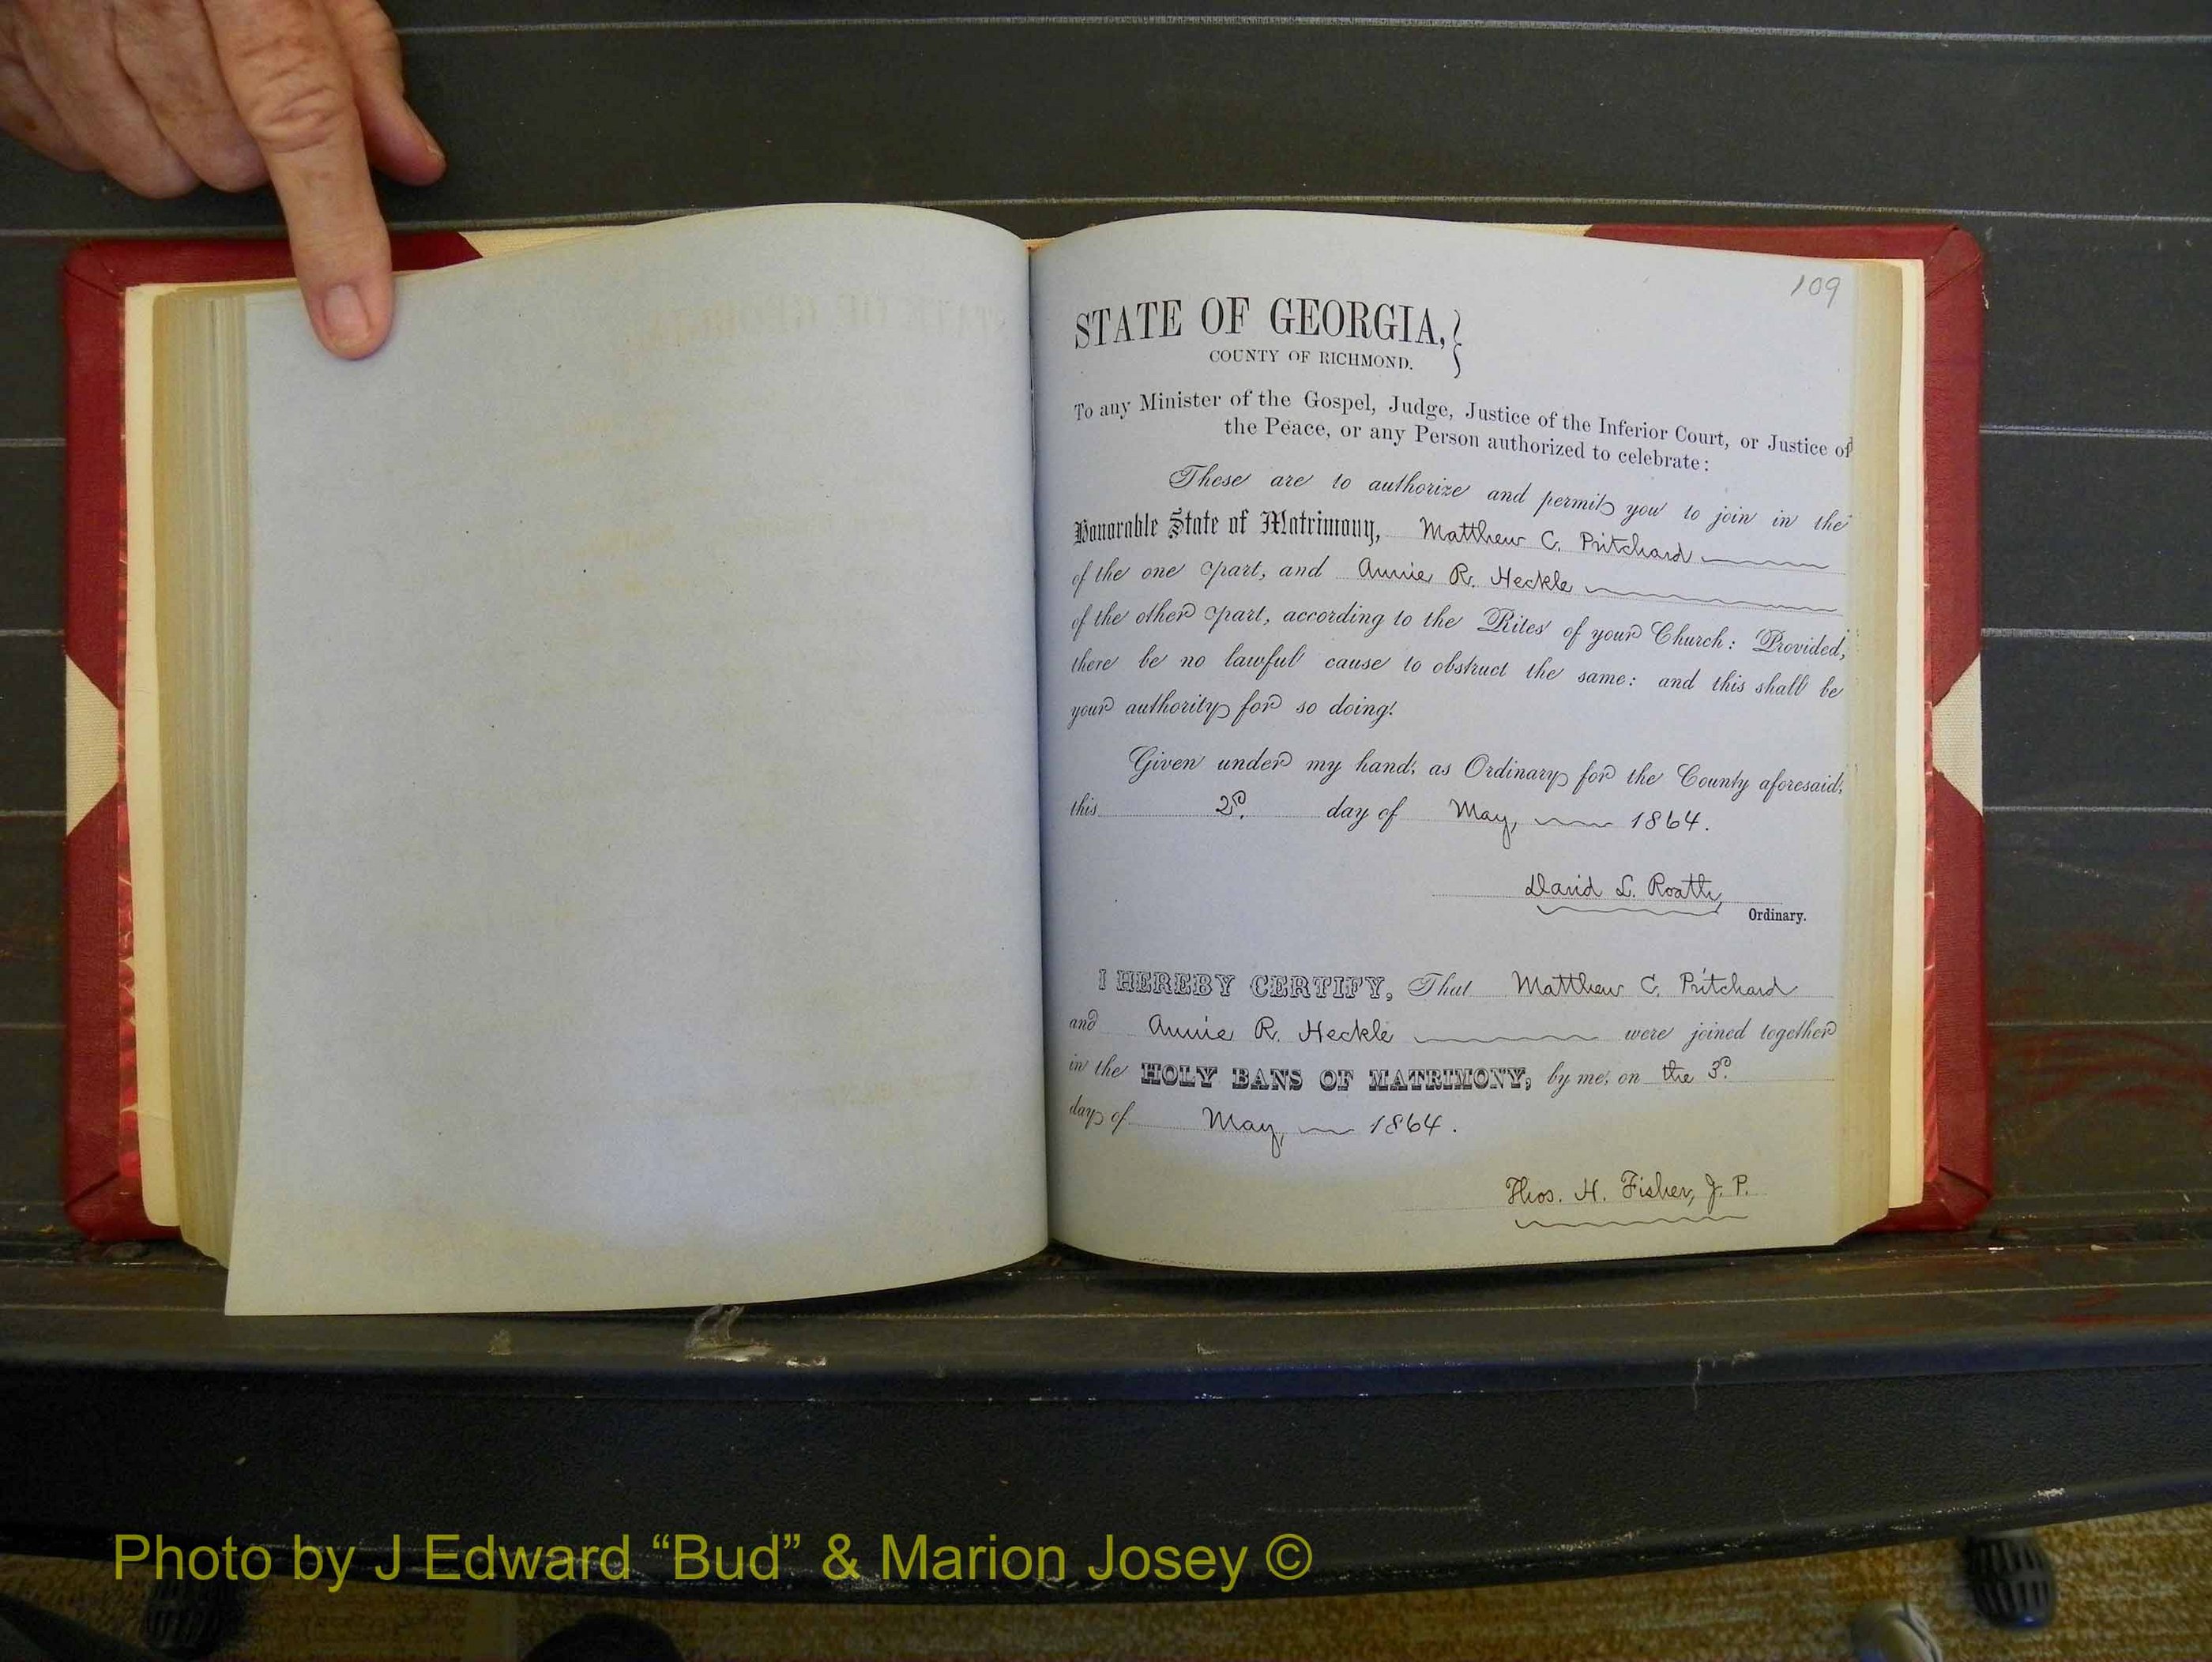 109
STATE OF GEORGIA,
COUNTY OF RICHMOND.
To any Minister of the Gospel, Judge, Justice of the Inferior Court, or Justice of
the Peace, or any Person authorized to celebrate:
These are to authorize and permit you to join in the
Honorable State of Matrimony, Matthew C. Pritchard
of the one part, and Annie R. Heckle
of the other part, according to the Rites of your Church: Provided,
there be no lawful cause to obstruct the same: and this shall be
your authority for so doing.
Given under my hand, as Ordinary for the County aforesaid,
this 2d. day of May, 1864.
David L. Roath,
Ordinary.
I HEREBY CERTIFY, That Matthew C. Pritchard
and Annie R. Heckle were joined together
in the HOLY BANS OF MATRIMONY, by me, on the 3d.
day of May, 1864.
Thos. H. Fisher, J. P.
Photo by J Edward “Bud” & Marion Josey ©